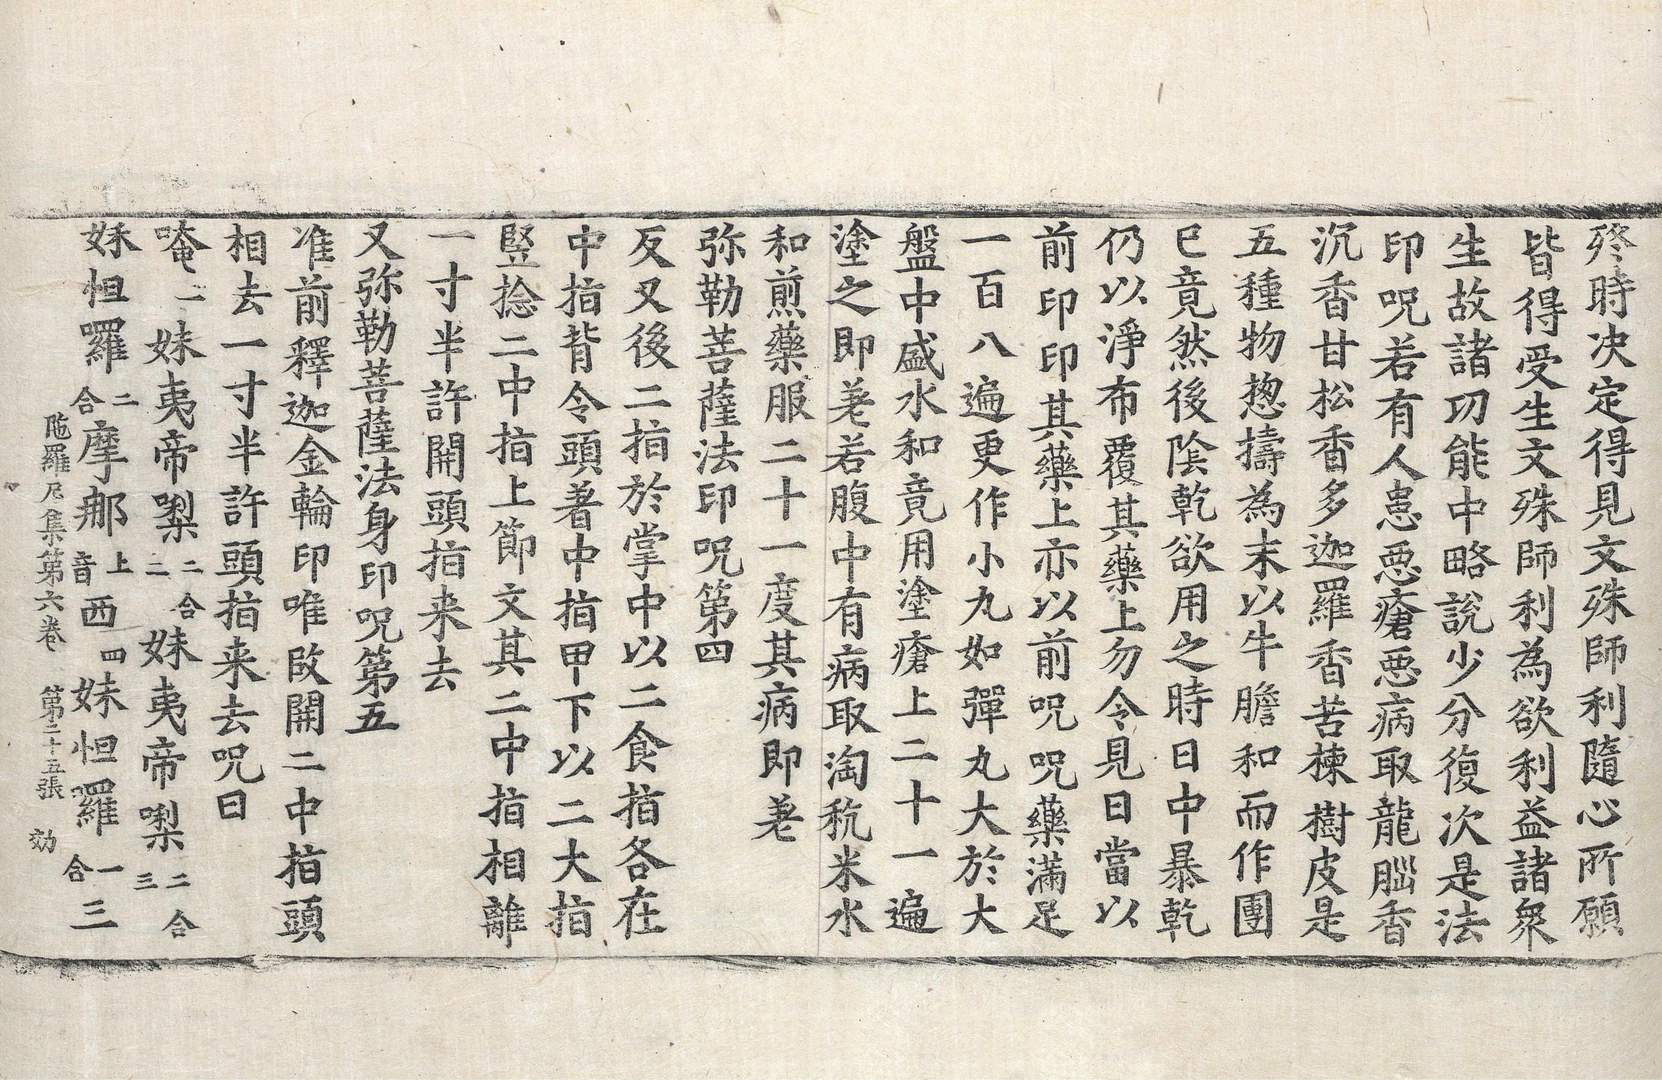 終時決定得見文殊師利隨心所願
皆得受生文殊師利為欲利益諸衆
生故諸功能中略說少分復次是法
印呪若有人患惡瘡惡病取龍腦香
沉香甘松香多迦羅香苦楝樹皮是
五種物惣擣為末以牛膽和而作團
已竟然後陰乾欲用之時日中暴乾
仍以淨布覆其藥上勿令見日當以
前印印其藥上亦以前呪呪藥滿足
一百八遍更作小丸如彈丸大於大
盤中盛水和竟用塗瘡上二十一遍
塗之即差若腹中有病取淘秔米水
和煎藥服二十一度其病即差
弥勒菩薩法印呪第四
反叉後二指於掌中以二食指各在
中指背令頭著中指甲下以二大指
竪捻二中指上節文其二中指相離
一寸半許開頭指来去
又弥勒菩薩法身印呪第五
准前釋迦金輪印唯改開二中指頭
相去一寸半許頭指来去呪曰
唵一妹夷帝㗚二合二妹夷帝㗚二合三
妹怛囉二合摩那上音西四妹怛囉一合三
陁羅尼集第六卷 第二十五張 効